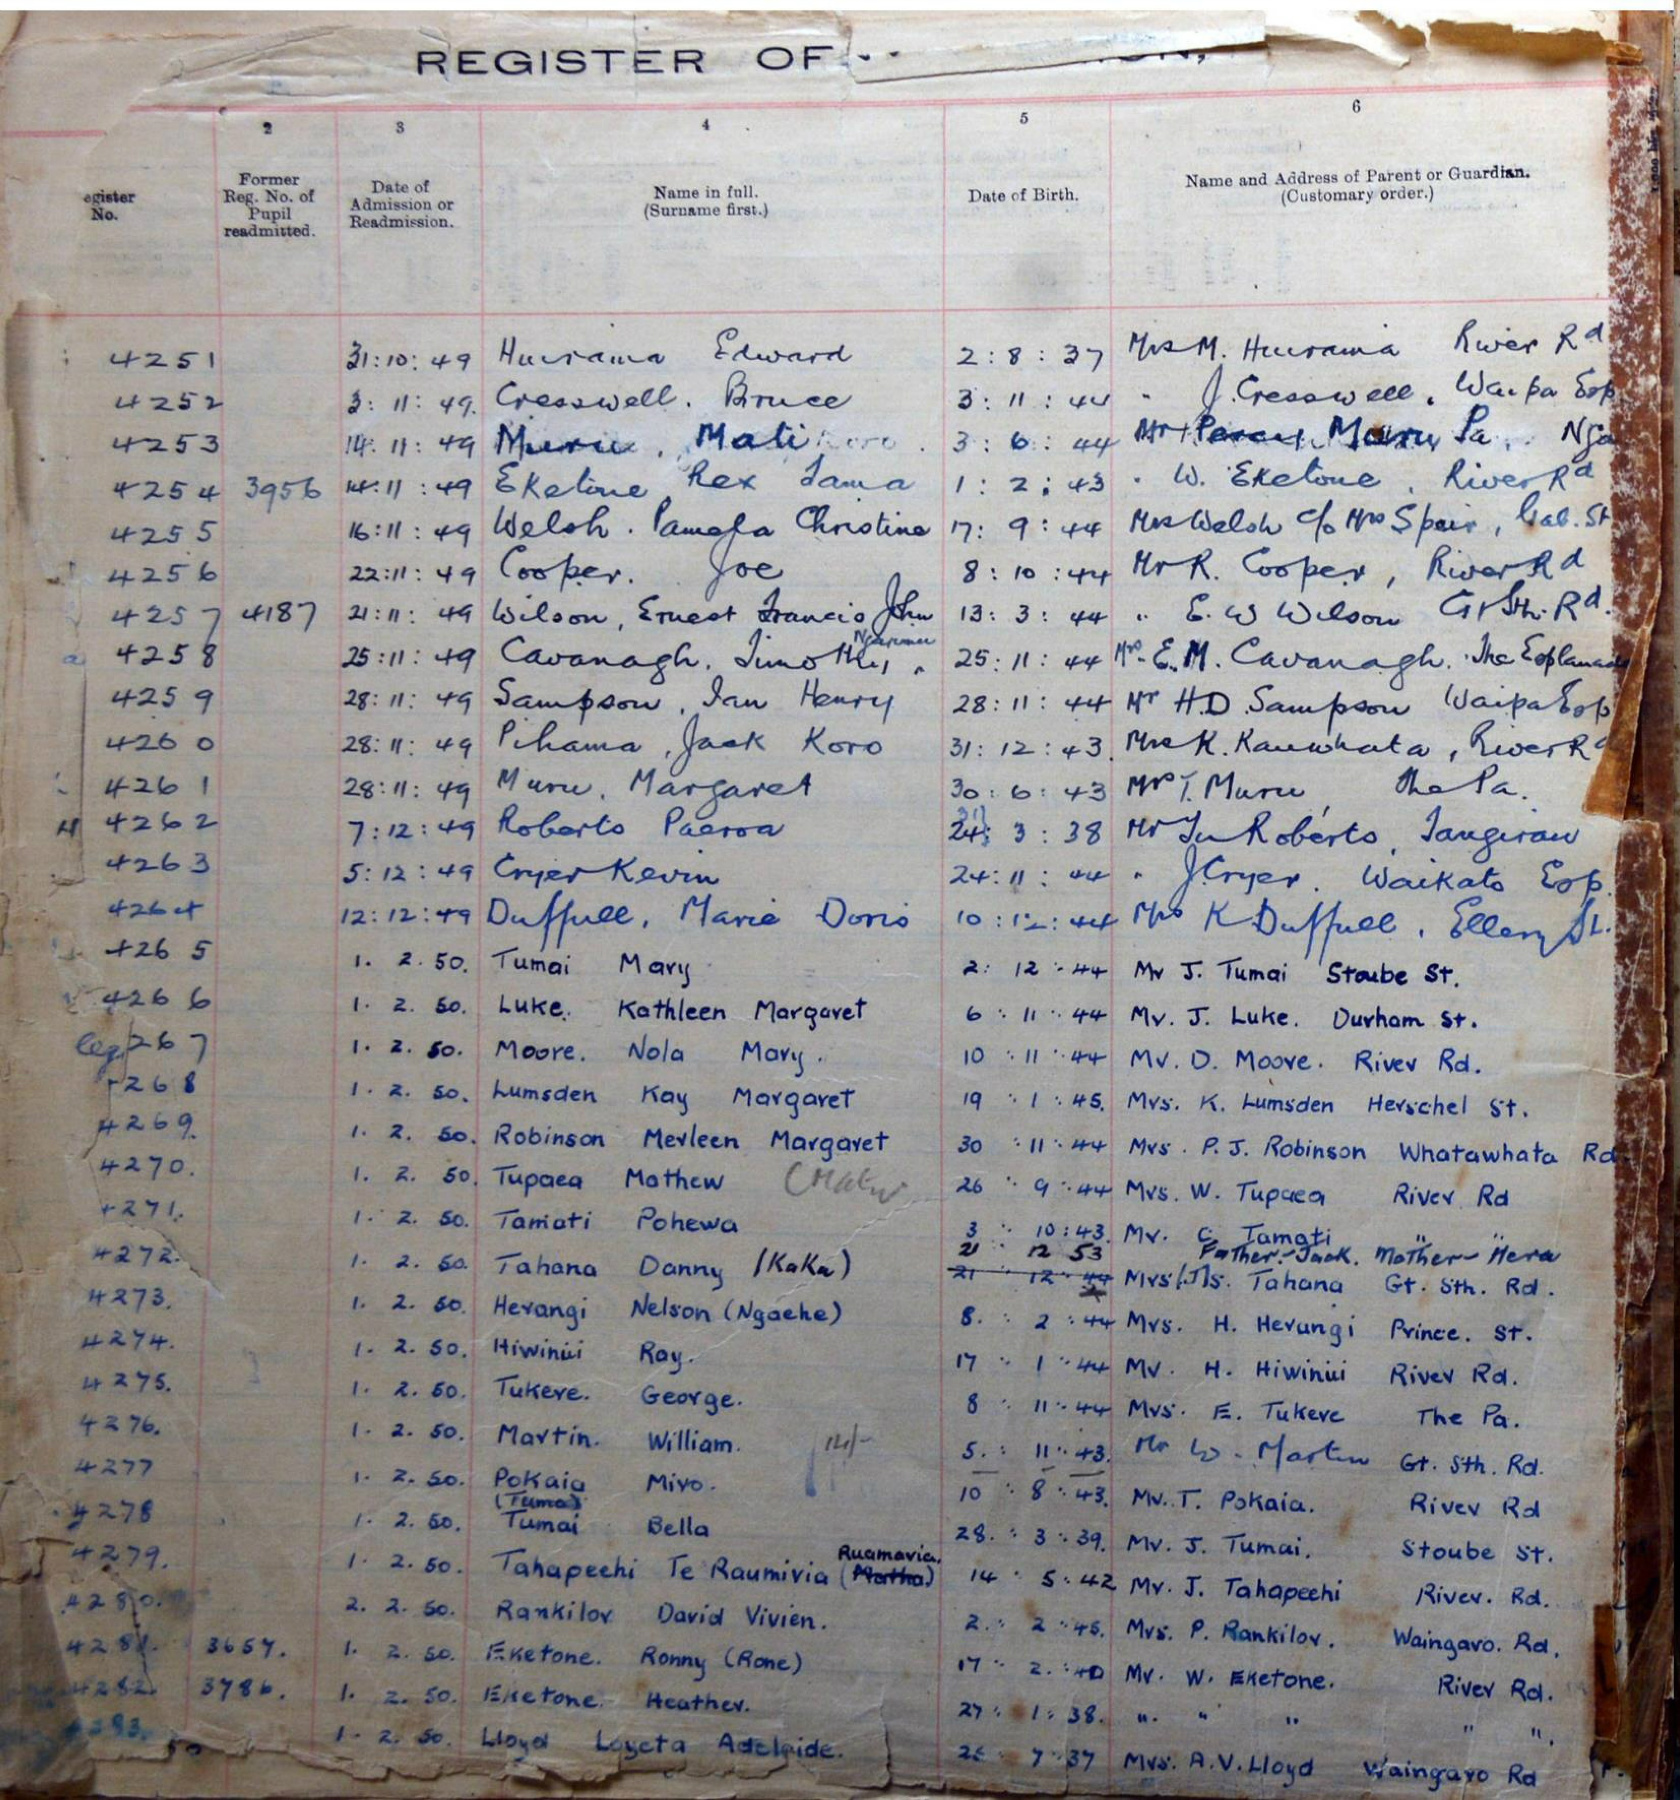 REGISTER OF
2 3 4 5 6
egister No.
Former Reg. No. of Pupil readmitted.
Date of Admission or Readmission.
Name in full. (Surname first.)
Date of Birth.
Name and Address of Parent or Guardian. (Customary order.)
4251 31:10:49 Huirama Edward 2:8:37 Mrs M. Huirama River Rd
4252 3:11:49. Cresswell. Bruce 3:11:44 " J. Cresswell. Waipa Esp
4253 14:11:49 Muru, Mati 3:6:44 Mr Percy Muru Pa. Nga
4254 3956 14:11:49 Eketone Rex Tama 1:2:43 " W. Eketone, River Rd
4255 16:11:49 Welsh. Pamela Christine 17:9:44 Mrs Welsh c/o Mrs Speir, St
4256 22:11:49 Cooper. Joe 8:10:44 Mr R. Cooper, River Rd
4257 4187 21:11:49 Wilson, Ernest Francis John 13:3:44 " E. W Wilson Gt Sth. Rd.
4258 25:11:49 Cavanagh. Timothy, 25:11:44 Mrs E.M. Cavanagh. The Esplanade
4259 28:11:49 Sampson, Ian Henry 28:11:44 Mr H.D. Sampson Waipa Esp
4260 28:11:49 Pihama, Jack Koro 31:12:43. Mrs K. Kauwhata, River Rd
4261 28:11:49 Muru. Margaret 30:6:43 Mrs T. Muru, The Pa.
4262 7:12:49 Roberts Paeroa 24:3:38 Mr Tu Roberts, Tangirau
4263 5:12:49 Cryer Kevin 24:11:44 " J. Cryer. Waikato Esp.
4264 12:12:49 Duffull, Marie Doris 10:12:44 Mrs K Duffull, Ellery St.
4265 1. 2. 50. Tumai Mary 2: 12 : 44 Mr J. Tumai Stoube St.
4266 1. 2. 50. Luke. Kathleen Margaret 6 : 11 : 44 Mr. J. Luke. Durham St.
267 1. 2. 50. Moore. Nola Mary. 10 : 11 : 44 Mr. D. Moore. River Rd.
268 1. 2. 50. Lumsden Kay Margaret 19 : 1 : 45. Mrs. K. Lumsden Herschel St.
4269. 1. 2. 50. Robinson Merleen Margaret 30 : 11 : 44 Mrs. P. J. Robinson Whatawhata Rd.
4270. 1. 2. 50. Tupaea Mathew 26 : 9 : 44 Mrs. W. Tupaea River Rd
4271. 1. 2. 50. Tamati Pohewa 3 : 10 : 43. Mr. C Tamati " "
21 : 12 53 Father - Jack. Mother - Hera
4272. 1. 2. 50. Tahana Danny (Kaka) 21 12 44 Mrs/Js. Tahana Gt. Sth. Rd.
4273. 1. 2. 50. Herangi Nelson (Ngaehe) 8. : 2 : 44 Mrs. H. Herangi Prince. St.
4274. 1. 2. 50. Hiwinui Ray. 17 : 1 : 44 Mr. H. Hiwinui River Rd.
4275. 1. 2. 50. Tukere. George. 8 : 11 : 44 Mrs. E. Tukere The Pa.
4276. 1. 2. 50. Martin. William. 5. : 11 : 43. Mr W. Martin Gt. Sth. Rd.
4277 1. 2. 50. Pokaia Miro. 10 : 8 : 43. Mr. T. Pokaia. River Rd
4278 1. 2. 50. Tumai Bella 28. : 3 : 39. Mr. J. Tumai. Stoube St.
Ruamavia.
4279. 1. 2. 50. Tahapeehi Te Raumivia (Martha) 14 : 5 : 42 Mr. J. Tahapeehi River. Rd.
4280. 2. 2. 50. Rankilor David Vivien. 2. : 2 : 45. Mrs. P. Rankilor. Waingaro. Rd.
4281. 3657. 1. 2. 50. Eketone. Ronny (Rone) 17 : 2. : 40 Mr. W. Eketone. River Rd.
4282. 3786. 1. 2. 50. Eketone Heather. 27 : 1 : 38. " " " " ".
4283. 1. 2. 50. Lloyd Loyeta Adelaide. 26 7 : 37 Mrs. A.V. Lloyd Waingaro Rd